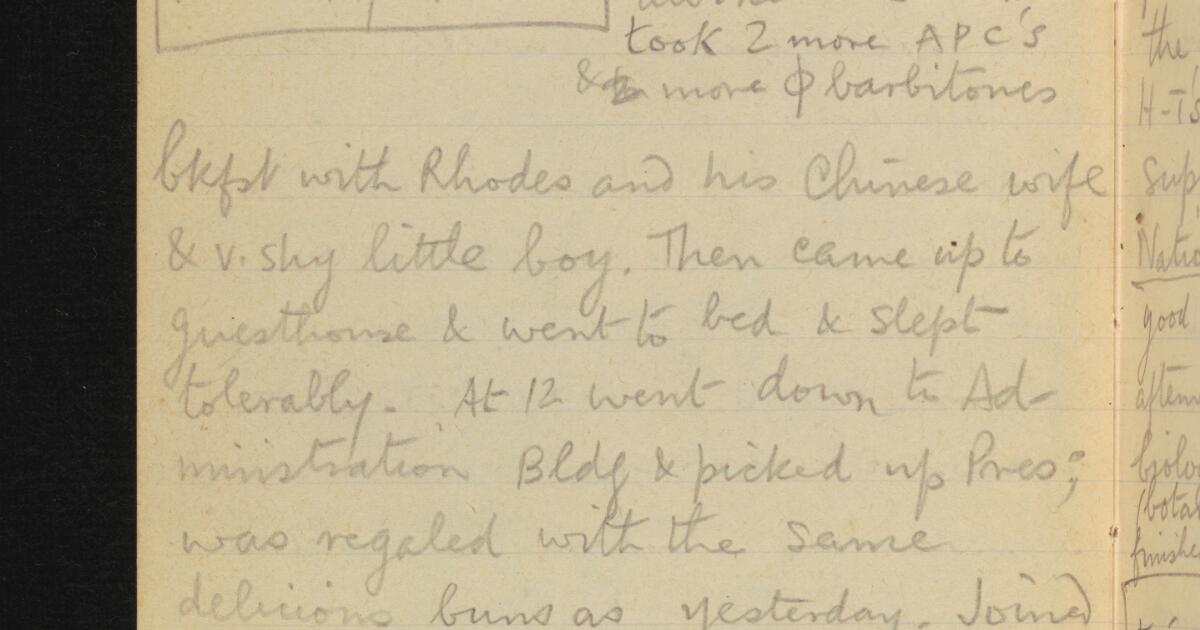 took 2 more APC's
& more φ barbitones
bkfst with Rhodes and his Chinese wife
& v. shy little boy. Then came up to
guesthouse & went to bed & slept
tolerably. At 12 went down to Ad-
ministration Bldg & picked up Pres;
was regaled with the same
delicious buns as yesterday. Joined
the
H-T's
sup
Natio
good
aftern
biolo
(bota
finishe